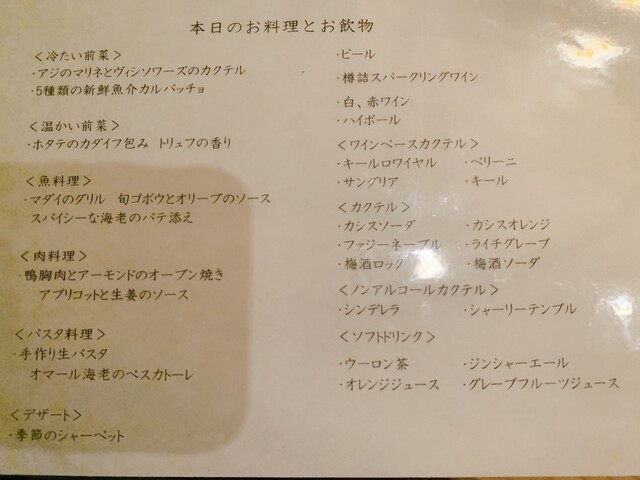 本日のお料理とお飲物
＜冷たい前菜＞
・アジのマリネとヴィシソワーズのカクテル
・5種類の新鮮魚介カルパッチョ
＜温かい前菜＞
・ホタテのカダイフ包み　トリュフの香り
＜魚料理＞
・マダイのグリル　旬ゴボウとオリーブのソース
スパイシーな海老のパテ添え
＜肉料理＞
・鴨胸肉とアーモンドのオーブン焼き
アプリコットと生姜のソース
＜パスタ料理＞
・手作り生パスタ
オマール海老のペスカトーレ
＜デザート＞
・季節のシャーベット
・ビール
・樽詰スパークリングワイン
・白、赤ワイン
・ハイボール
＜ワインベースカクテル＞
・キールロワイヤル　・ベリーニ
・サングリア　・キール
＜カクテル＞
・カシスソーダ　・カシスオレンジ
・ファジーネーブル　・ライチグレープ
・梅酒ロック　・梅酒ソーダ
＜ノンアルコールカクテル＞
・シンデレラ　・シャーリーテンプル
＜ソフトドリンク＞
・ウーロン茶　・ジンジャーエール
・オレンジジュース　・グレープフルーツジュース